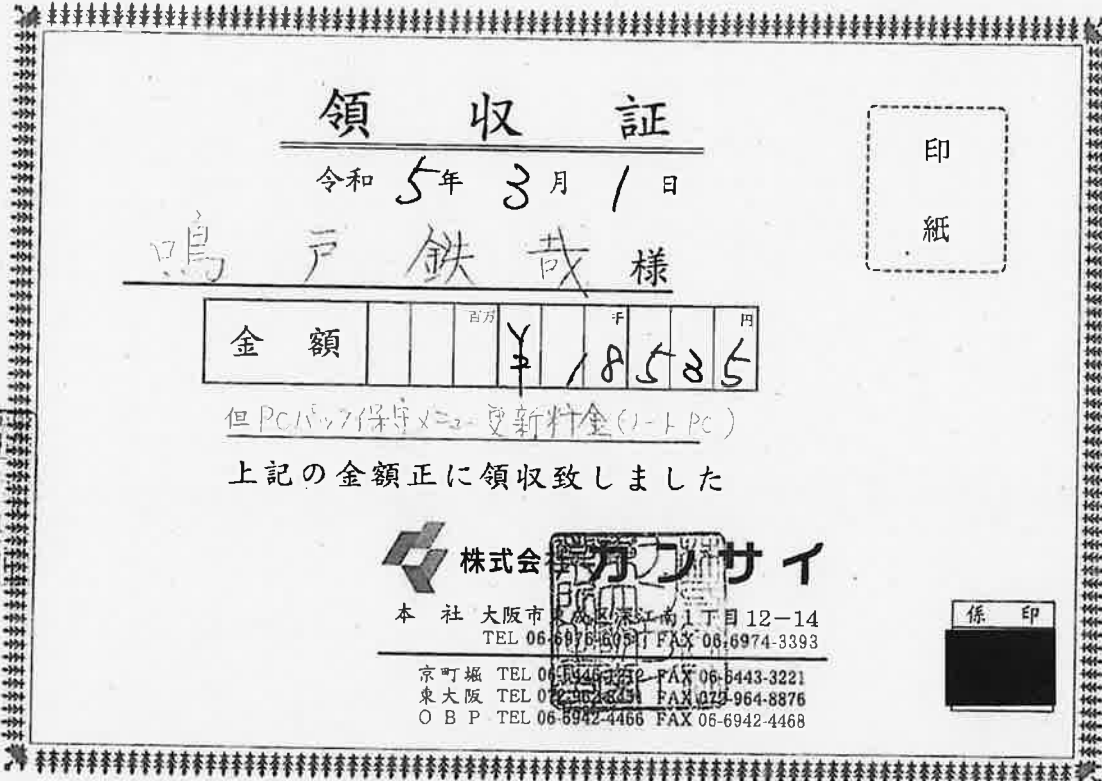 領収証
印紙
令和 5年 3月 1日
鳴戸鉄哉 様
金額 百万 千 円 ¥18535
但 PCパック保守メニュー更新料金(ノートPC)
上記の金額正に領収致しました
株式会社カンサイ
本社 大阪市東成区深江南1丁目12-14
TEL FAX 06-6974-3393
京町堀 TEL FAX 06-6443-3221
東大阪 TEL FAX 072-964-8876
OBP TEL 06-6942-4466 FAX 06-6942-4468
係印